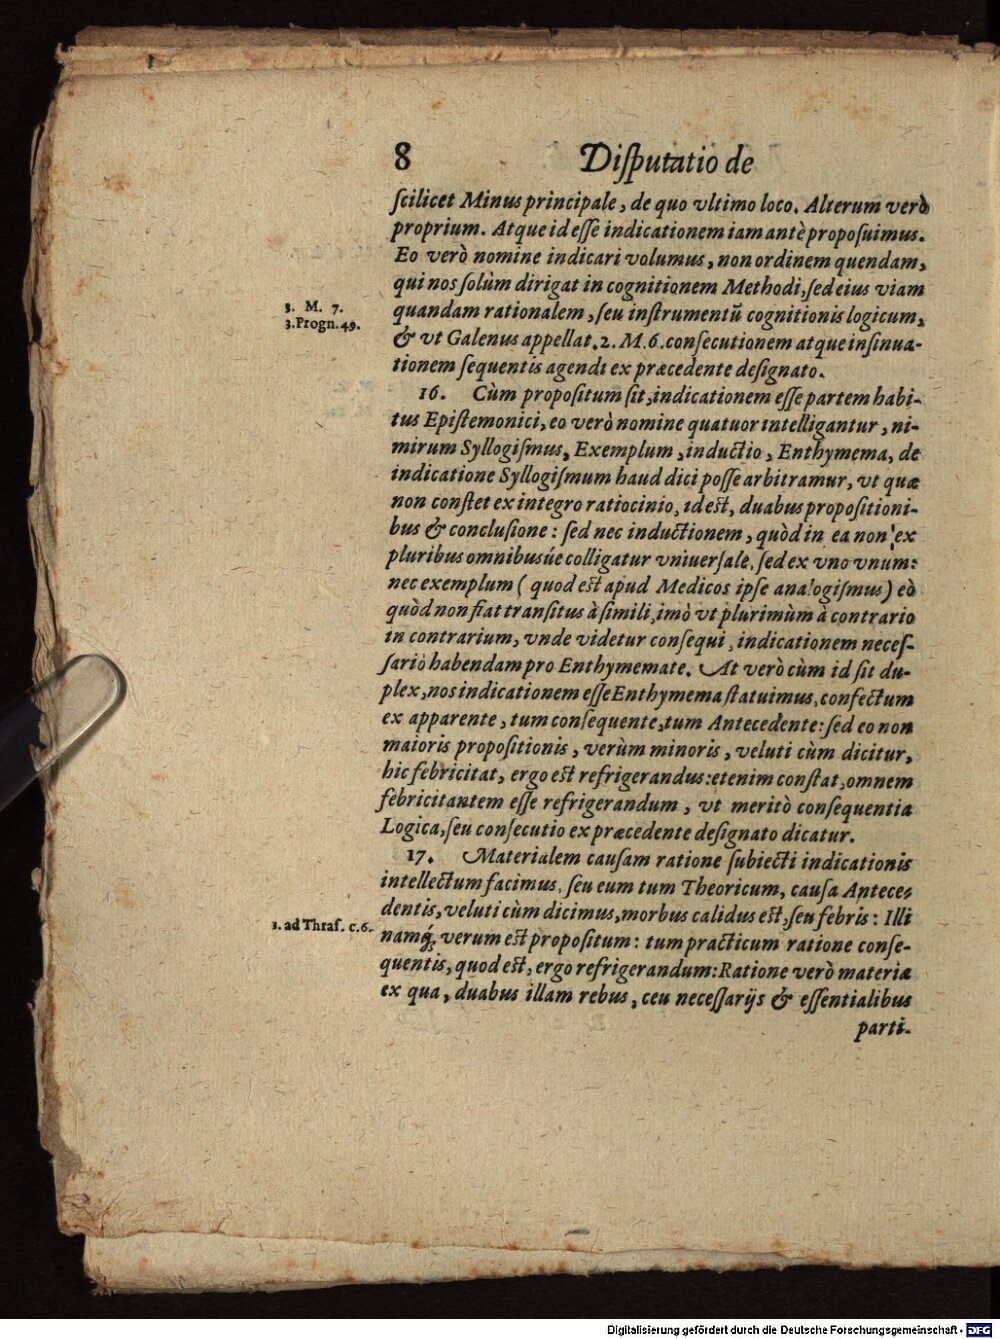 8 Diſputatio de
ſcilicet Minus principale, de quo vltimo loco. Alterum verò
proprium. Atque id eſſe indicationem iam antè propoſuimus.
Eo verò nomine indicari volumus, non ordinem quendam,
qui nos ſolùm dirigat in cognitionem Methodi, ſed eius viam
3. M. 7.
quandam rationalem, ſeu inſtrumentũ cognitionis logicum,
3. Progn. 49.
& vt Galenus appellat. 2. M. 6. conſecutionem atque inſinua-
tionem ſequentis agendi ex præcedente deſignato.
16. Cùm propoſitum ſit, indicationem eſſe partem habi-
tus Epiſtemonici, eo verò nomine quatuor intelligantur, ni-
mirum Syllogiſmus, Exemplum, inductio, Enthymema, de
indicatione Syllogiſmum haud dici poſſe arbitramur, vt quæ
non conſtet ex integro ratiocinio, id eſt, duabus propoſitioni-
bus & concluſione: ſed nec inductionem, quòd in ea non ex
pluribus omnibusúe colligatur vniuerſale, ſed ex vno vnum:
nec exemplum ( quod eſt apud Medicos ipſe analogiſmus) eò
quòd non fiat tranſitus à ſimili, imò vt plurimùm à contrario
in contrarium, vnde videtur conſequi, indicationem neceſ-
ſariò habendam pro Enthymemate. At verò cùm id ſit du-
plex, nos indicationem eſſe Enthymema ſtatuimus, confectum
ex apparente, tum conſequente, tum Antecedente: ſed eo non
maioris propoſitionis, verùm minoris, veluti cùm dicitur,
hic febricitat, ergo eſt refrigerandus: etenim conſtat, omnem
febricitantem eſſe refrigerandum, vt meritò conſequentia
Logica, ſeu conſecutio ex præcedente deſignato dicatur.
17. Materialem cauſam ratione ſubiecti indicationis
intellectum facimus, ſeu eum tum Theoricum, cauſa Antece-
dentis, veluti cùm dicimus, morbus calidus eſt, ſeu febris: Illi
1. ad Thraſ. c. 6.
namq́; verum eſt propoſitum: tum practicum ratione conſe-
quentis, quod eſt, ergo refrigerandum: Ratione verò materiæ
ex qua, duabus illam rebus, ceu neceſſarijs & eſſentialibus
parti-
Digitalisierung gefördert durch die Deutsche Forschungsgemeinschaft - DFG